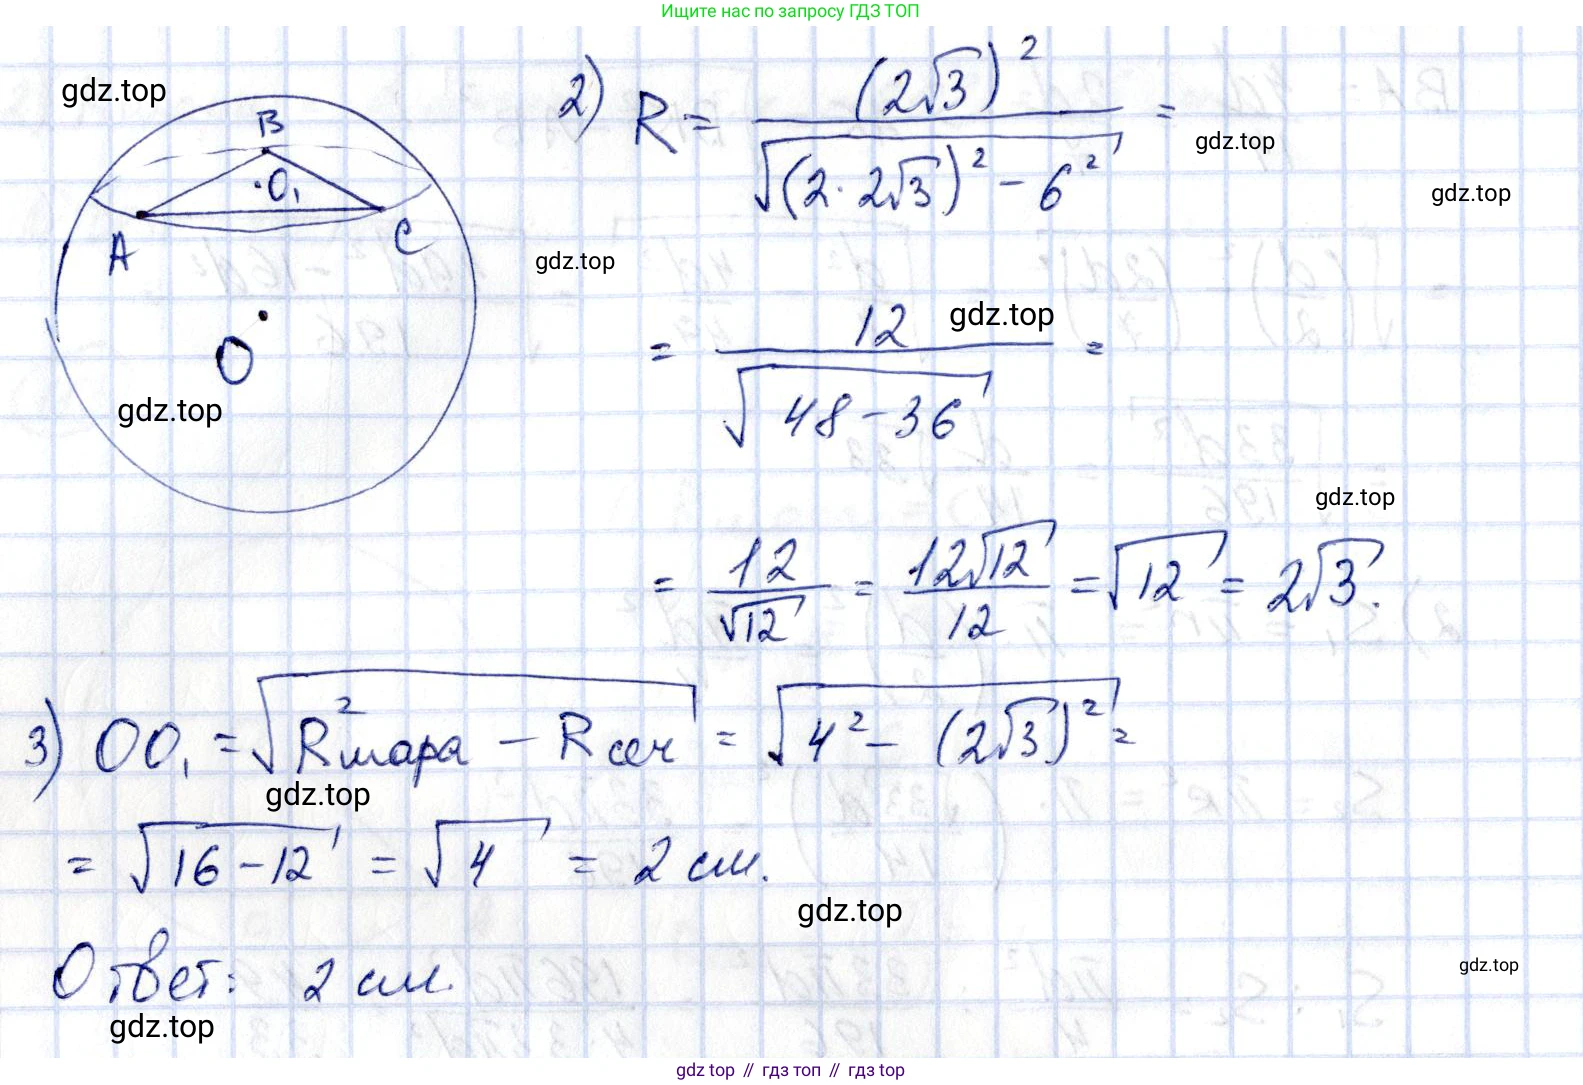 Ищите нас по запросу ГДЗ ТОП
gdz.top
B
O₁
A
C
O
gdz.top
2) R = (2√3)² / √((2·2√3)² - 6²) =
gdz.top
gdz.top
gdz.top
= 12 / √(48 - 36) =
gdz.top
gdz.top
= 12/√12 = 12√12/12 = √12 = 2√3.
3) OO₁ = √(R²шара - Rсеч) = √(4² - (2√3)²) =
gdz.top
= √(16 - 12) = √4 = 2 см.
gdz.top
Ответ: 2 см.
gdz.top
gdz.top
gdz.top // гдз топ // gdz top